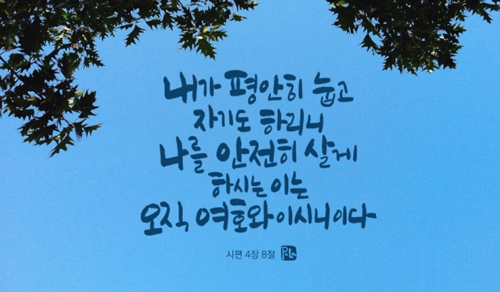 내가 평안히 눕고
자기도 하리니
나를 안전히 살게
하시는 이는
오직 여호와이시니이다
시편 4장 8절